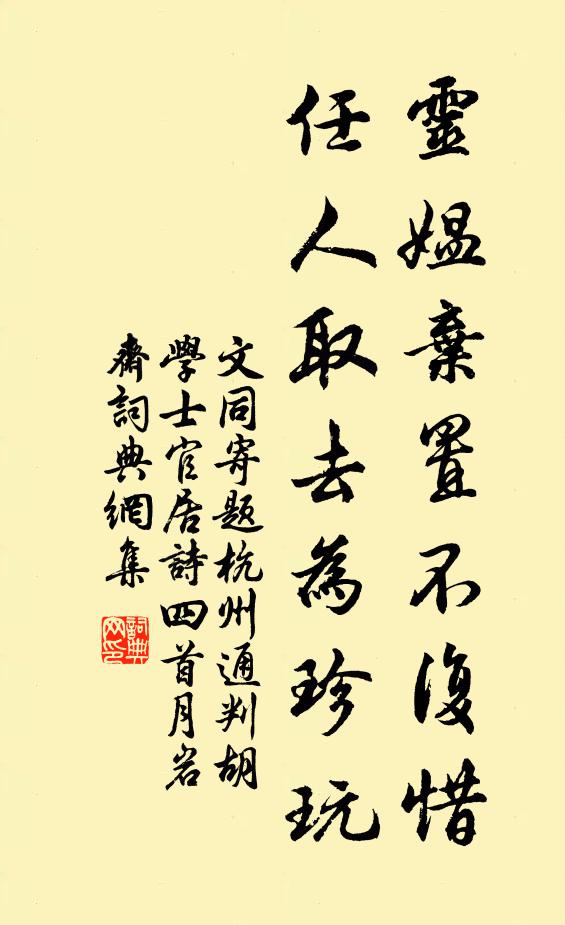 靈媼棄置不復惜
任人取去為珍玩
文同寄題杭州通判胡
學士官居詩四首月岩
齋詞典網集
詞典
网印